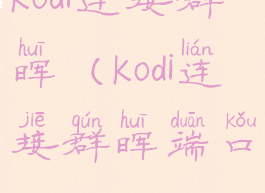 Kodi连接群
huī lián
晖（Kodi连
jiē qún huī duān kǒu
接群晖端口